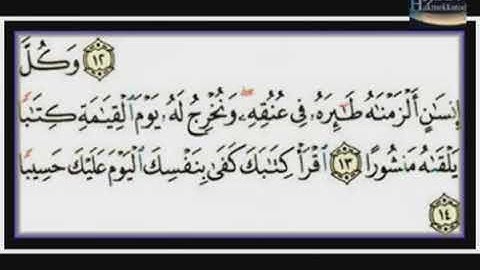 Hakmekkatod
﴿١٢﴾ وَكُلَّ
إِنسَـٰنٍ أَلْزَمْنَـٰهُ طَـٰٓئِرَهُۥ فِى عُنُقِهِۦ ۖ وَنُخْرِجُ لَهُۥ يَوْمَ ٱلْقِيَـٰمَةِ كِتَـٰبًا
يَلْقَىٰهُ مَنشُورًا ﴿١٣﴾ ٱقْرَأْ كِتَـٰبَكَ كَفَىٰ بِنَفْسِكَ ٱلْيَوْمَ عَلَيْكَ حَسِيبًا
﴿١٤﴾